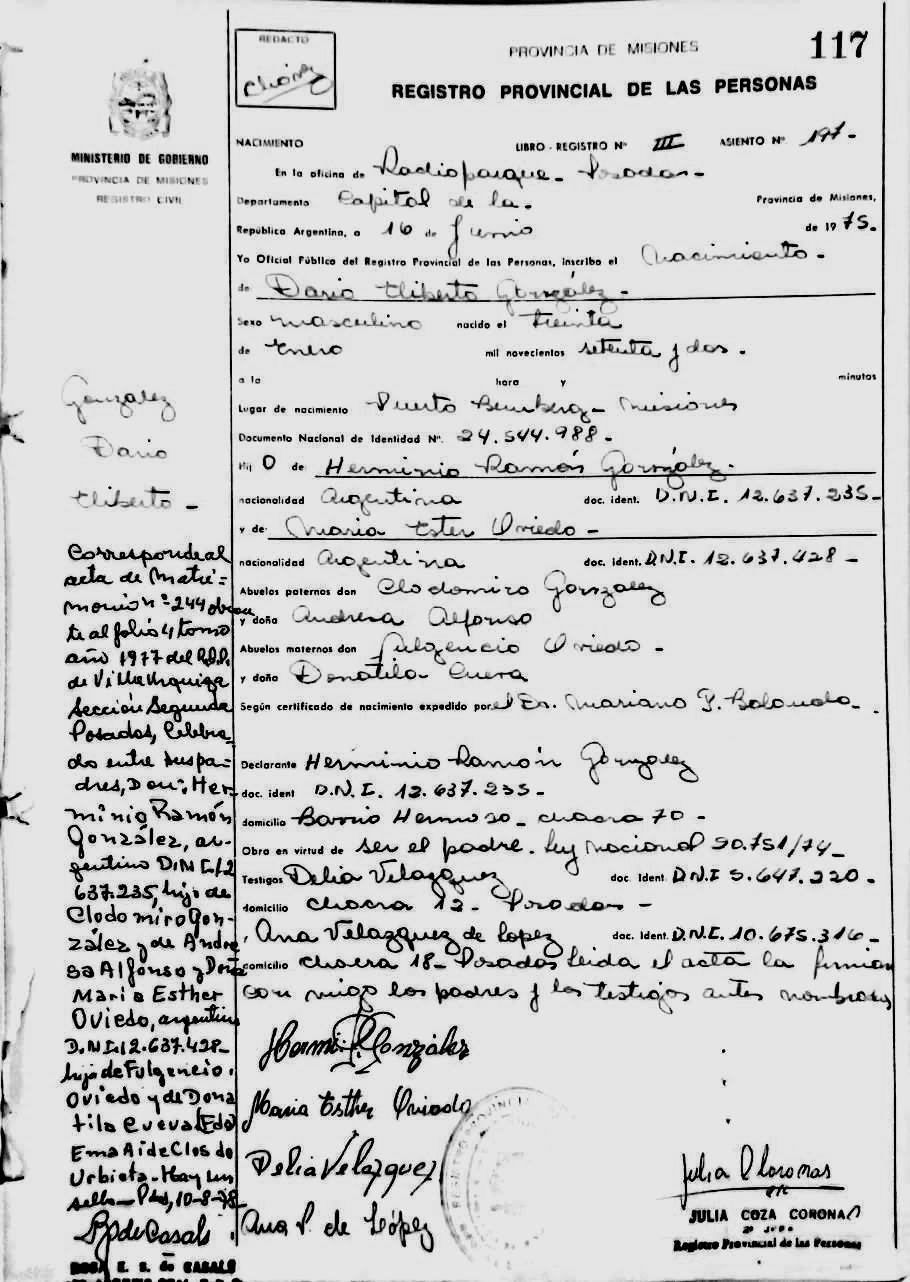 REDACTO
Chávez
PROVINCIA DE MISIONES
117
REGISTRO PROVINCIAL DE LAS PERSONAS
MINISTERIO DE GOBIERNO
PROVINCIA DE MISIONES
REGISTRO CIVIL
NACIMIENTO LIBRO - REGISTRO Nº III ASIENTO Nº 197-
En la oficina de Radioparque - Posadas -
Departamento Capital de la. Provincia de Misiones,
República Argentina, a 16 de Junio de 1975.
Yo Oficial Público del Registro Provincial de las Personas, inscribo el Nacimiento -
de Dario Eliberto González -
Sexo masculino nacido el treinta
de Enero mil novecientos setenta y dos.
a la hora y minutos
Lugar de nacimiento Puerto Bemberg - Misiones
Documento Nacional de Identidad Nº. 24.544.988 -
Hij O de Herminio Ramón González -
nacionalidad Argentina doc. ident. D.N.I. 12.637.235 -
y de Maria Ester Oviedo -
nacionalidad Argentina doc. ident. D.N.I. 12.637.428 -
Abuelos paternos don Clodomiro Gonzalez
y doña Andresa Alfonso
Abuelos maternos don Fulgencio Oviedo -
y doña Donatila Cueva
Según certificado de nacimiento expedido por el Dr. Mariano P.
Declarante Herminio Ramón González
doc. ident D.N.I. 12.637.235 -
domicilio Barrio Hermoso - chacra 70 -
Obra en virtud de ser el padre. Ley Nacional 20.751/74 -
Testigos Delia Velazquez doc. Ident D.N.I 5.647.220 -
domicilio chacra 12 - Posadas -
Ana Velazquez de Lopez doc. Ident. D.N.I. 10.675.316 -
domicilio chacra 18 - Posadas Leida el acta la firman
con migo los padres y los testigos antes nombrados
Gonzalez
Dario
Eliberto -
Corresponde al
acta de Matri=
monio nº 244 obran
te al folio 4 tomo
año 1977 del R.P.P.
de Villa Urquiza
Sección Segunda
Posadas, Celebra-
do entre sus pa-
dres, Don: Her-
minio Ramón
González, ar-
gentino D.N.I. 12
637.235, hijo de
Clodomiro Gon-
zález y de Andre
sa Alfonso y Doña
Maria Esther
Oviedo, argentina
D.N.I. 12.637.428 -
hija de Fulgencio
Oviedo y de Dona
tila Cueva (Fdo
Ema A. de Clos de
Urbieta - Hay un
sello - Pdas, 10-8-78
de Casals
ROSA E. S. de CASALS
Hermi R. González
Maria Esther Oviedo
Delia Velazquez
Ana V. de López
REGISTRO PROVINCIAL
Julia C. Coronas
JULIA COZA CORONAS
Registro Provincial de las Personas